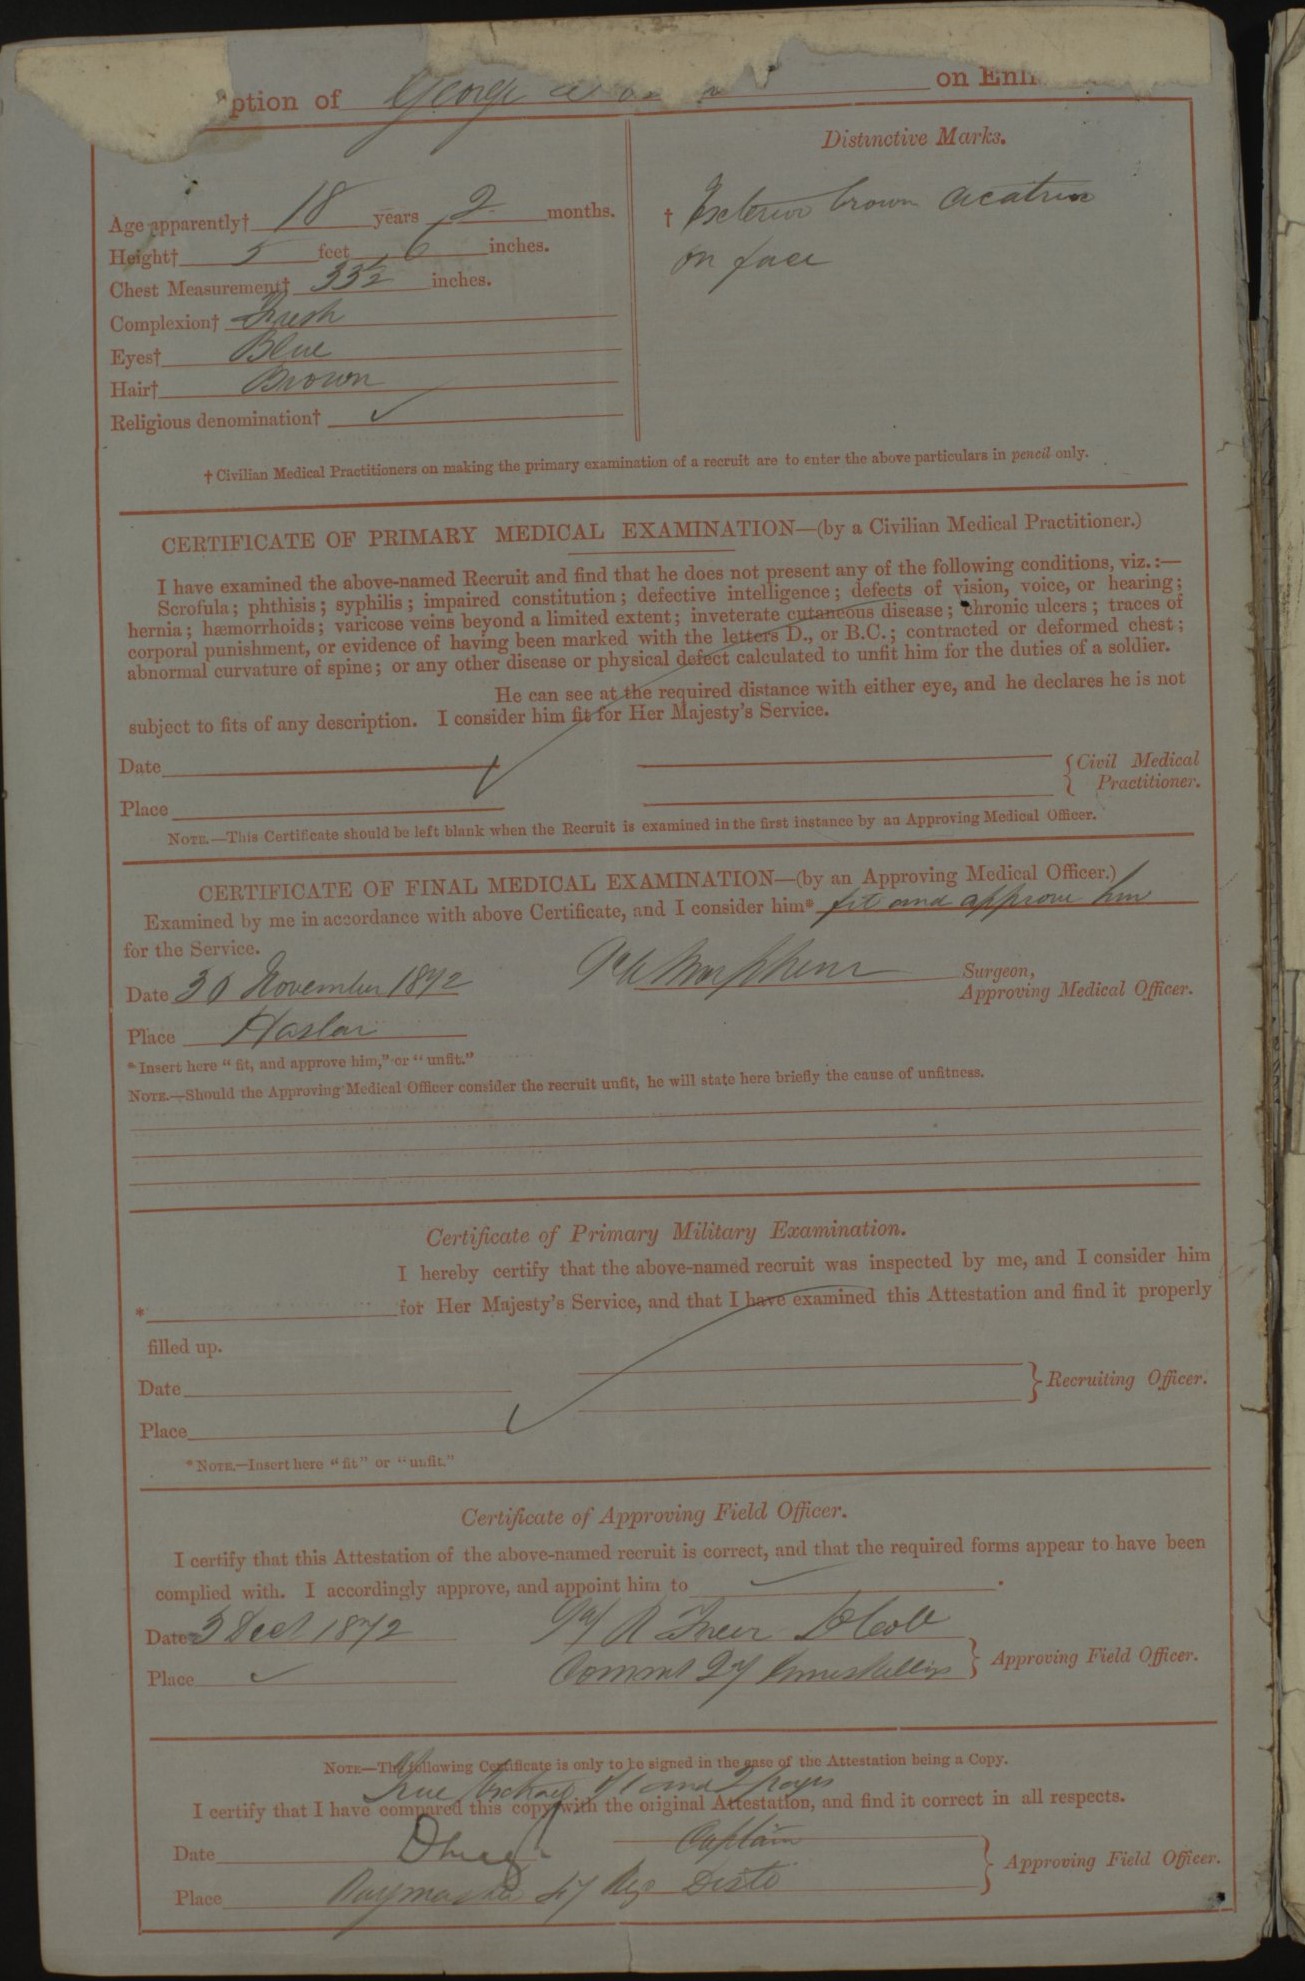 ption of George on Enli
Distinctive Marks.
Age apparently† 18 years 2 months.
Height† 5 feet 6 inches.
Chest Measurement† 33½ inches.
Complexion† Fresh
Eyes† Blue
Hair† Brown
Religious denomination†
† brown cicatrix
on face
† Civilian Medical Practitioners on making the primary examination of a recruit are to enter the above particulars in pencil only.
CERTIFICATE OF PRIMARY MEDICAL EXAMINATION—(by a Civilian Medical Practitioner.)
I have examined the above-named Recruit and find that he does not present any of the following conditions, viz.:—
Scrofula; phthisis; syphilis; impaired constitution; defective intelligence; defects of vision, voice, or hearing;
hernia; hæmorrhoids; varicose veins beyond a limited extent; inveterate cutaneous disease; chronic ulcers; traces of
corporal punishment, or evidence of having been marked with the letters D., or B.C.; contracted or deformed chest;
abnormal curvature of spine; or any other disease or physical defect calculated to unfit him for the duties of a soldier.
He can see at the required distance with either eye, and he declares he is not
subject to fits of any description. I consider him fit for Her Majesty's Service.
Date
{Civil Medical
Practitioner.
Place
NOTE.—This Certificate should be left blank when the Recruit is examined in the first instance by an Approving Medical Officer.
CERTIFICATE OF FINAL MEDICAL EXAMINATION—(by an Approving Medical Officer.)
Examined by me in accordance with above Certificate, and I consider him* fit and approve him
for the Service.
Date 30 November 1892 Surgeon,
Approving Medical Officer.
Place Haslar
* Insert here "fit, and approve him," or "unfit."
NOTE.—Should the Approving Medical Officer consider the recruit unfit, he will state here briefly the cause of unfitness.
Certificate of Primary Military Examination.
I hereby certify that the above-named recruit was inspected by me, and I consider him
* for Her Majesty's Service, and that I have examined this Attestation and find it properly
filled up.
Date
} Recruiting Officer.
Place
* NOTE.—Insert here "fit" or "unfit."
Certificate of Approving Field Officer.
I certify that this Attestation of the above-named recruit is correct, and that the required forms appear to have been
complied with. I accordingly approve, and appoint him to .
Date 3 Dec 1892
Place } Approving Field Officer.
NOTE—The following Certificate is only to be signed in the case of the Attestation being a Copy.
True of 1 and 2 pages
I certify that I have compared this copy with the original Attestation, and find it correct in all respects.
Date Captain
} Approving Field Officer.
Place Paymaster